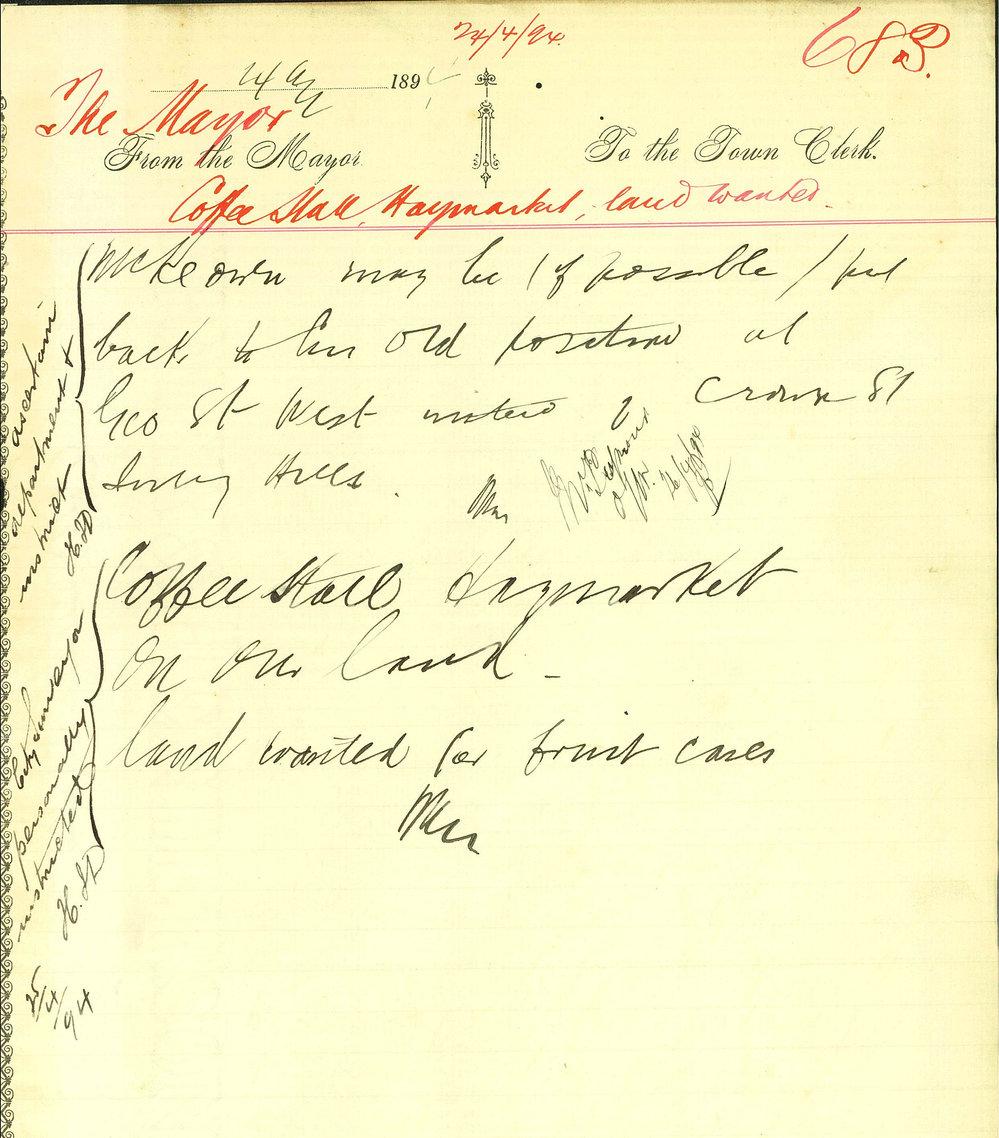 24/4/94.
683.
24 1894
The Mayor
From the Mayor
To the Town Clerk.
Coffee Stall, Haymarket, land wanted.
McKeown may be (if possible) put
back to his old position at
Geo St West Crown St
Surry Hills.
26/4/94
Coffee Stall Haymarket
On Our land -
land wanted for fruit cases
ascertain
department &
instruct H.D
City Surveyor
personally
instructed H.D
25/4/94